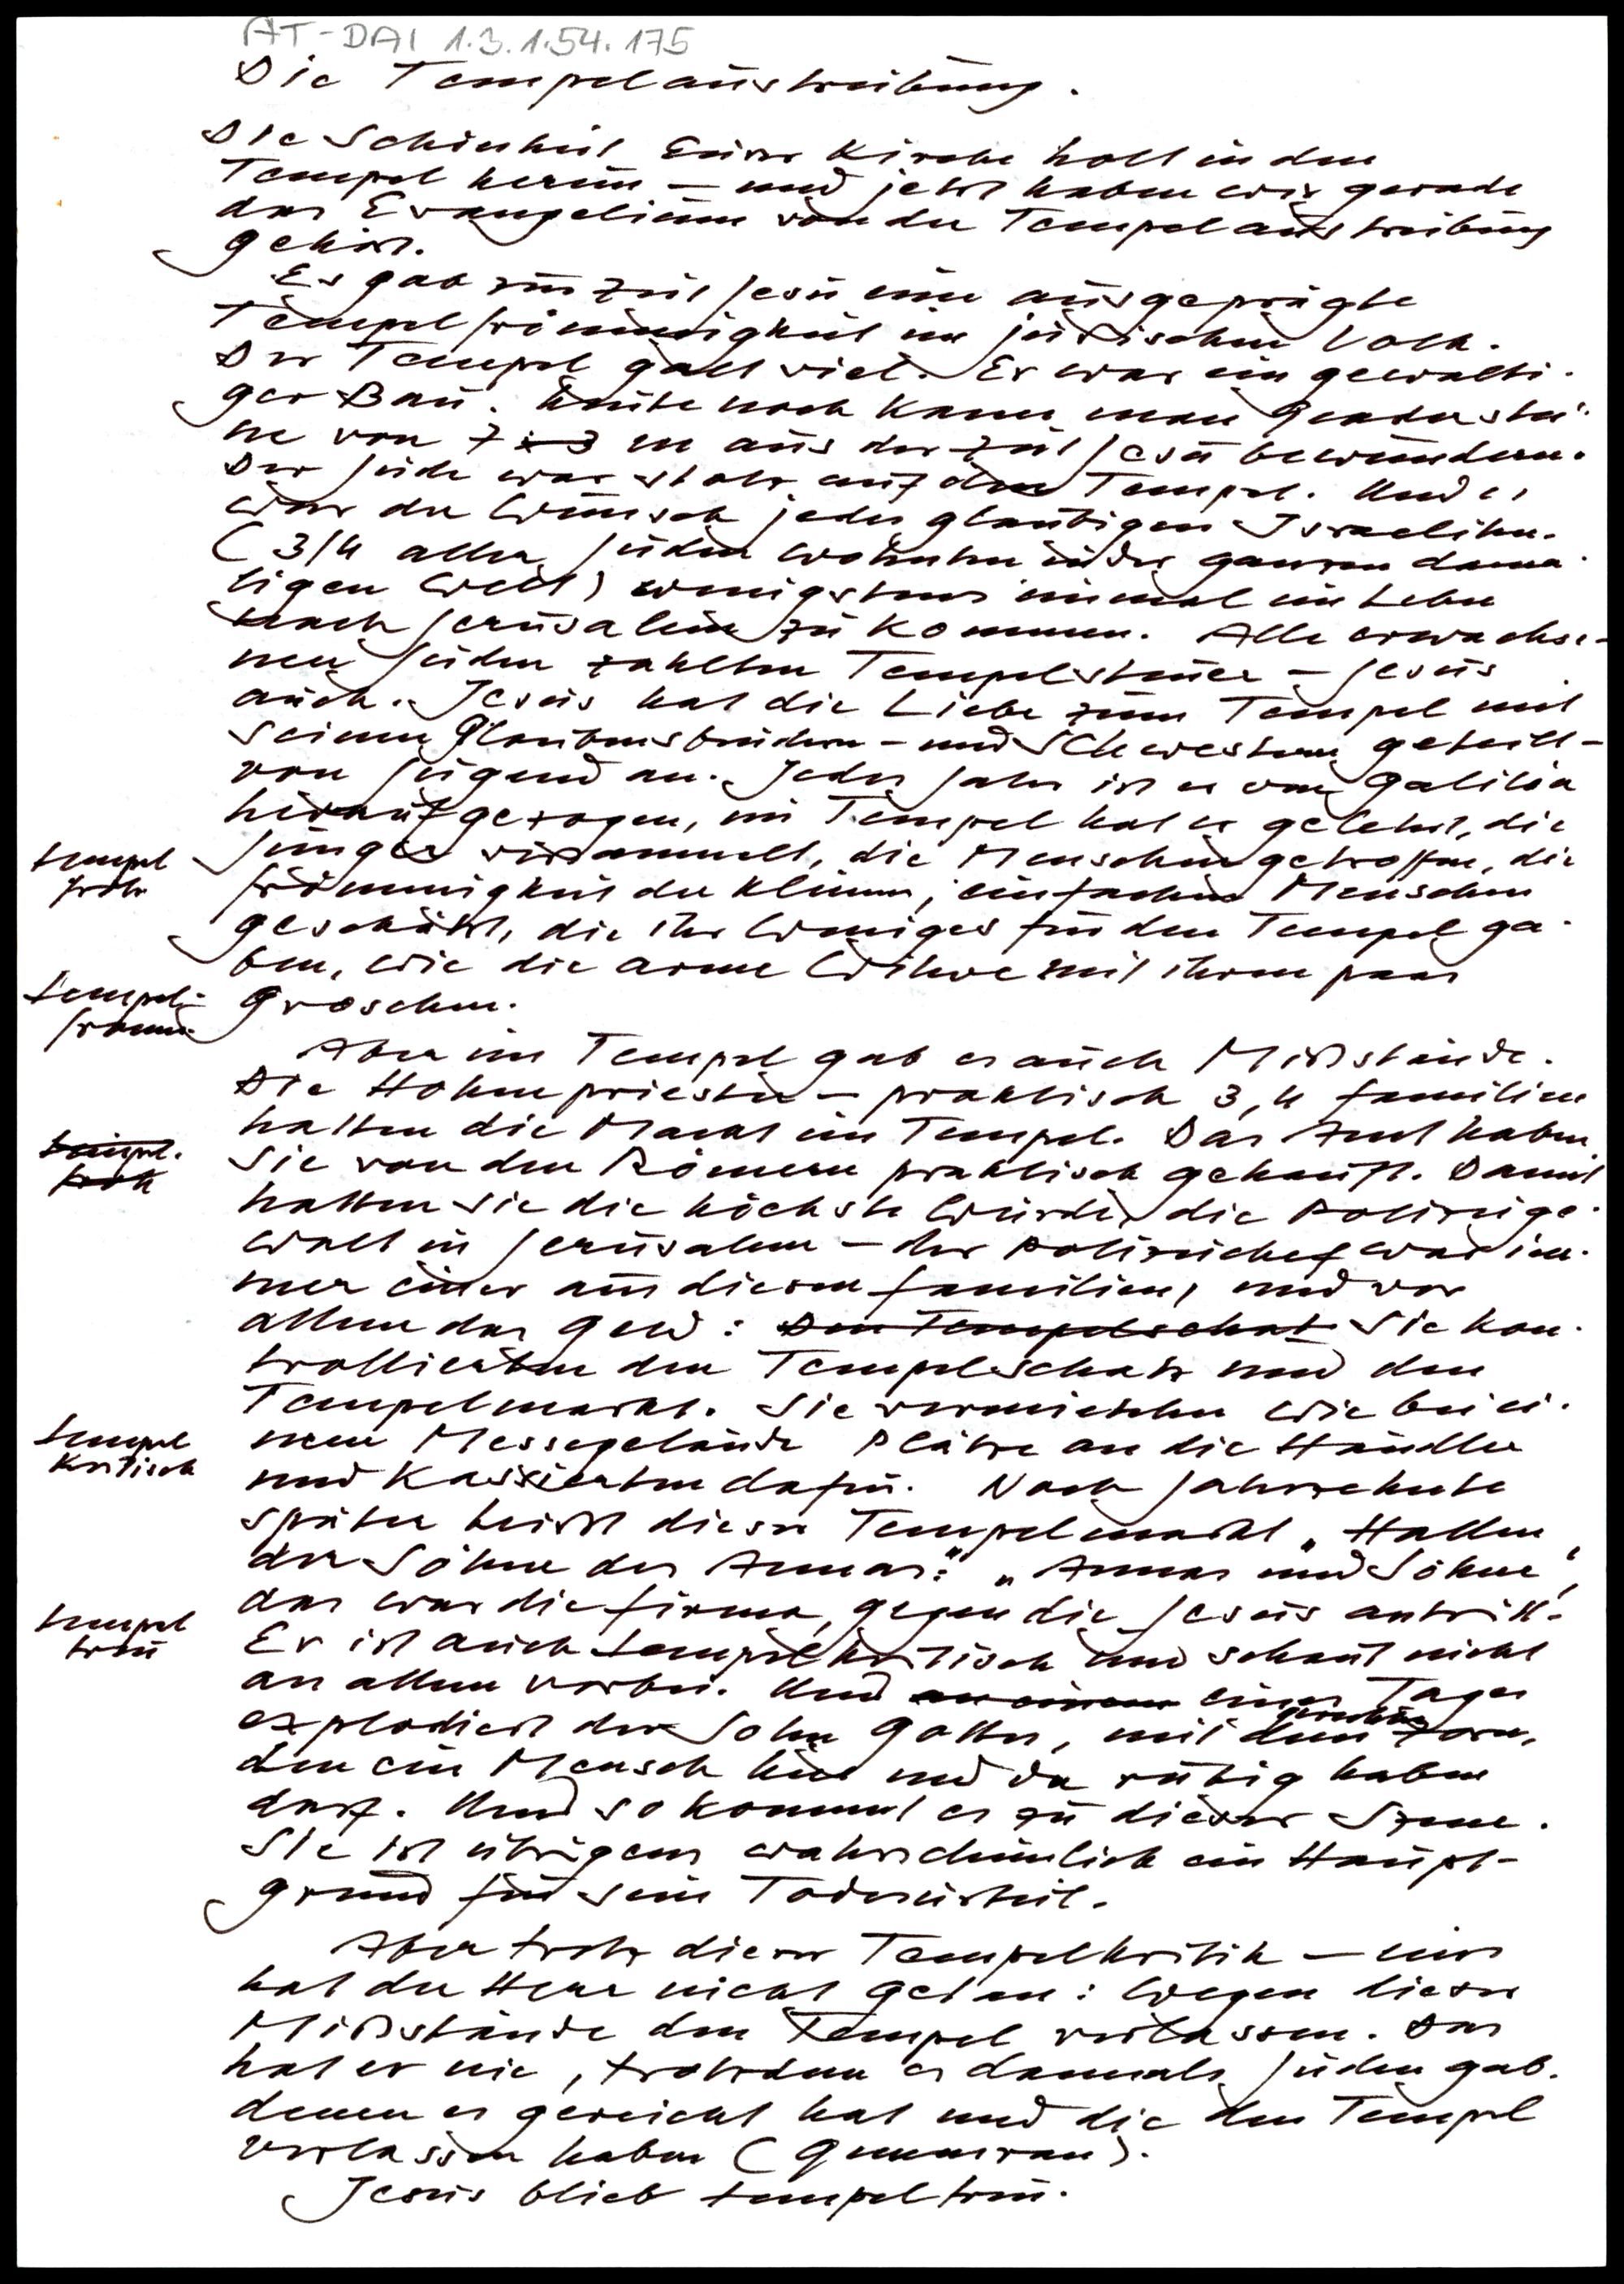 AT-DAI 1.3.1.54.175
Die Tempelaustreibung.
Die Schönheit Eurer Kirche holt in den
Tempel herein – und jetzt haben wir gerade
das Evangelium von der Tempelaustreibung
gehört.
Es gab zur Zeit Jesu eine ausgeprägte
Tempelfrömmigkeit im jüdischen Volk.
Der Tempel galt viel. Er war ein gewalti-
ger Bau. Heute noch kann man Quaderstei-
ne von 7 x 3 m aus der Zeit Jesu bewundern.
Der Jude war stolz auf den Tempel. Und es
war der Wunsch jedes gläubigen Israeliten.
(3/4 aller Juden wohnten in der ganzen dama-
ligen Welt) wenigstens einmal im Leben
nach Jerusalem zu kommen. Alle erwachse-
nen Juden zahlten Tempelsteuer – Jesus
auch. Jesus hat die Liebe zum Tempel mit
seinen Glaubensbrüdern – und Schwestern geteilt –
von Jugend an. Jedes Jahr ist er von Galiläa
heraufgezogen, im Tempel hat er gelehrt, die
tempel
Jünger versammelt, die Menschen getroffen, die
froh
Frömmigkeit der kleinen, einfachen Menschen
geschätzt, die ihr Weniges für den Tempel ga-
ben, wie die arme Witwe mit ihren paar
tempel-
Groschen.
fromm
Aber im Tempel gab es auch Mißstände.
Die Hohenpriester – praktisch 3, 4 Familien
hatten die Macht im Tempel. Das Amt haben
tempel.
sie von den Römern praktisch gekauft. Damit
hatten sie die höchste Würde, die Polizeige-
walt in Jerusalem – der Polizeichef war im-
mer einer aus diesen Familien, und vor
allem das Geld: Den Tempelschat Sie kon-
trollierten den Tempelschatz und den
Tempelmarkt. Sie vermieteten wie bei ei-
tempel
nem Messegelände Plätze an die Händler
kritisch
und kassierten dafür. Noch Jahrzehnte
später heißt dieser Tempelmarkt „Hallen
der Söhne des Annas." „Annas und Söhne",
das war die Firma, gegen die Jesus antritt.
tempel
treu
Er ist auch tempelkritisch und schaut nicht
an allem vorbei. Und an einem eines Tages
explodiert der Sohn Gottes, mit dem gerechten Zorn,
den ein Mensch hie und da ruhig haben
darf. Und so kommt es zu dieser Szene.
Sie ist übrigens wahrscheinlich ein Haupt-
grund für sein Todesurteil.
Aber trotz dieser Tempelkritik – eines
hat der Herr nicht getan: Wegen dieser
Mißstände den Tempel verlassen. Das
hat er nie, trotzdem es damals Juden gab.
denen es gereicht hat und die den Tempel
verlassen haben (Qumran).
Jesus blieb tempeltreu.